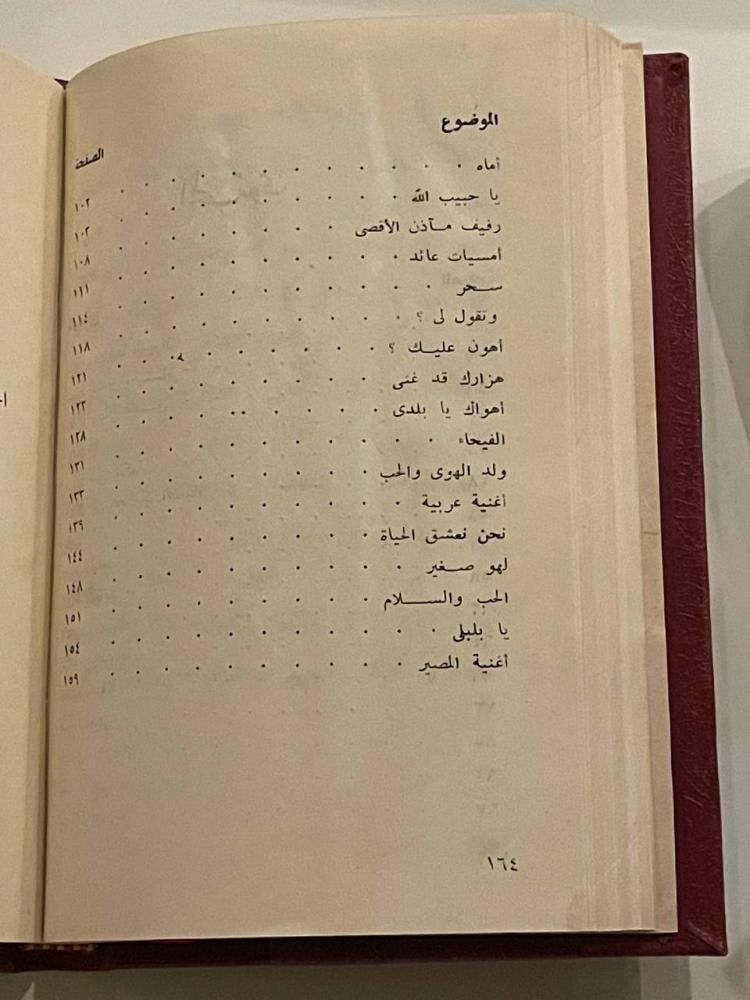 الموضوع الصفحة
أماه . . . . . . . . . . ١٠٢
يا حبيب الله . . . . . . . . . ١٠٣
رفيف مآذن الأقصى . . . . . . . ١٠٨
أمسيات عائد . . . . . . . . . ١١١
سحر . . . . . . . . . . ١١٤
وتقول لى ؟ . . . . . . . . . ١١٨
أهون عليك ؟ . . . . . . . . . ١٢١
هزارك قد غنى . . . . . . . . . ١٢٣
أهواك يا بلدى . . . . . . . . . ١٢٨
الفيحاء . . . . . . . . . . ١٣١
ولد الهوى والحب . . . . . . . . ١٣٣
أغنية عربية . . . . . . . . . ١٣٩
نحن نعشق الحياة . . . . . . . . ١٤٤
لهو صغير . . . . . . . . . ١٤٨
الحب والسلام . . . . . . . . . ١٥١
يا بلبلى . . . . . . . . . . ١٥٤
أغنية المصير . . . . . . . . . ١٥٩
١٦٤